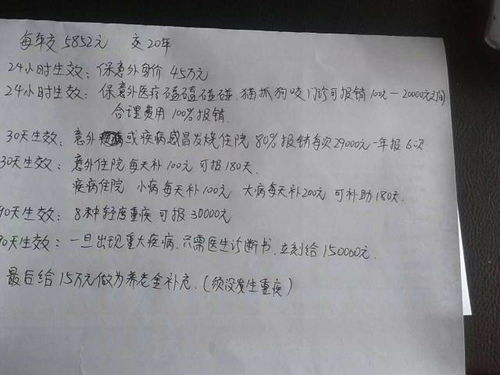 每年交 5852元 交20年
24小时生效：保意外身价 45万元
24小时生效：保意外医疗磕磕碰碰，猫抓狗咬门诊可报销 100元—20000元之间
合理费用 100% 报销.
30天生效：意外或疾病感冒发烧住院 80% 报销每次29000元一年报6次
30天生效：意外住院每天补100元 可报180天.
疾病住院 小病每天补100元 大病每天补200元 可补助180天.
90天生效：8种轻度重疾可报30000元
90天生效：一旦出现重大疾病.只需医生诊断书.立刻给150000元.
最后给15万元做为养老金补充.(须没发生重疾)